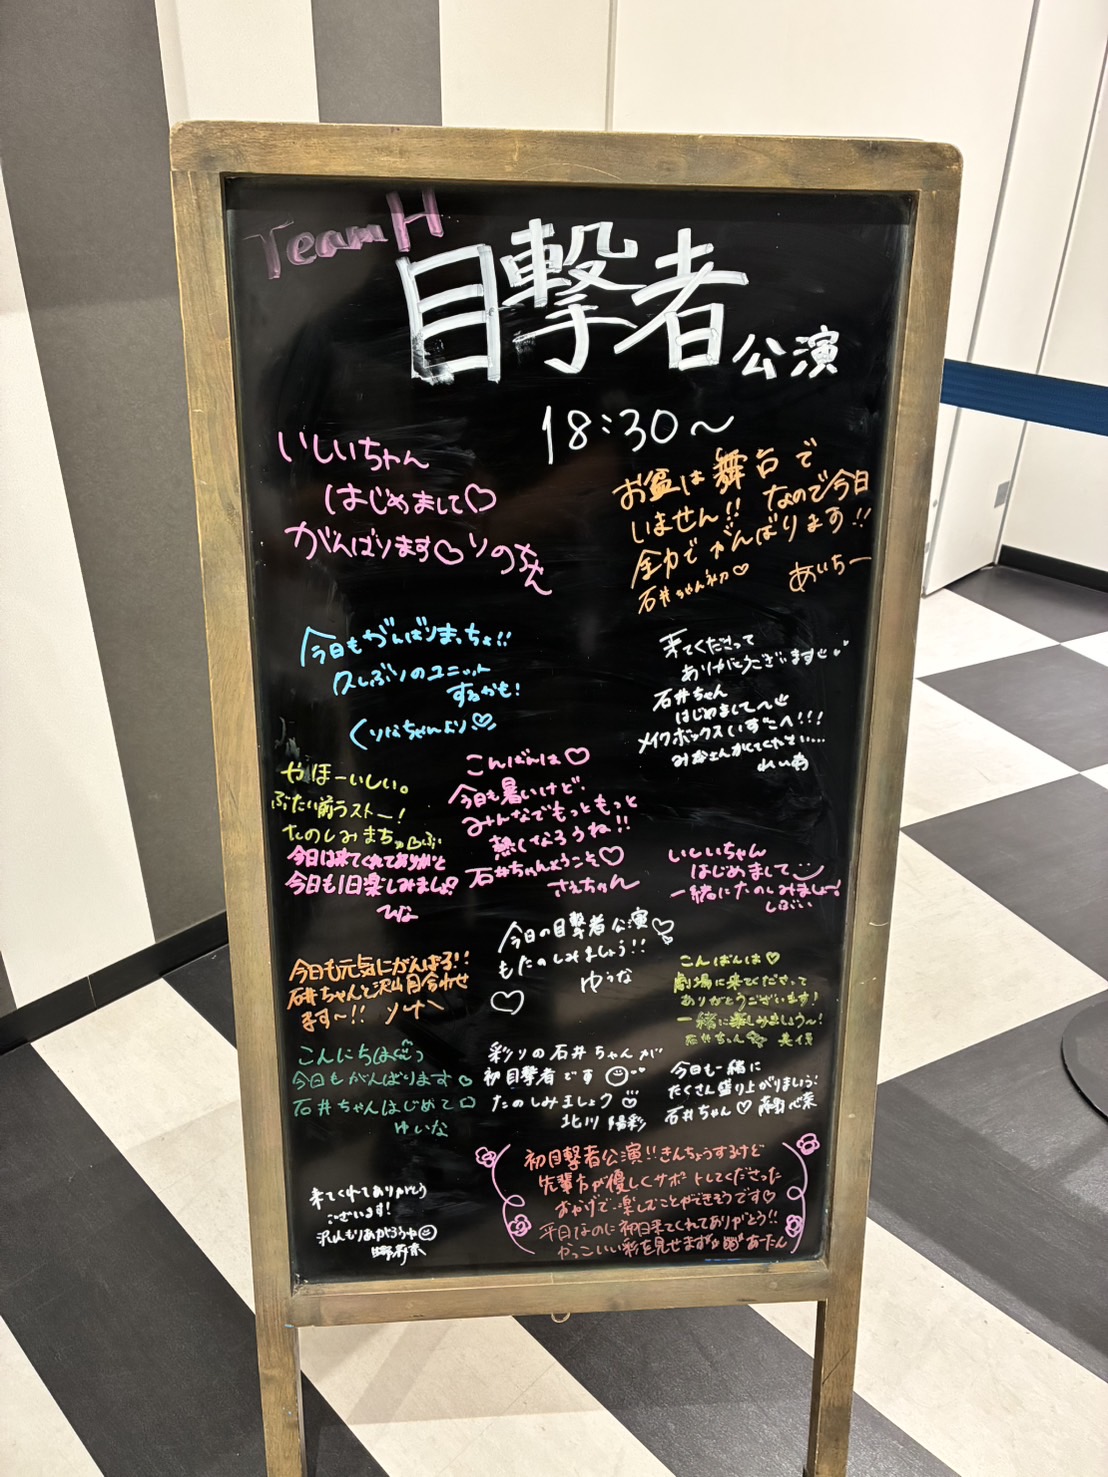 Team H
目撃者
公演
18:30～
いしいちゃん
はじめまして♡
がんばります♡ りのちゃん
お盆は舞台で
いません!! なので今日
全力でがんばります!!
石井ちゃん初♡ あいちー
今日もがんばりまっちょ!!
久しぶりのユニット
するかも!
くりはちゃんより♡
来てくださって
ありがとうございます
石井ちゃん
はじめまして～
メイクボックスいずこへ!!!
みなさんがしてください...
れいあ
やほーいしい。
ぶたい前ラストー!
たのしみまちょ しぶ
今日は来てくれてありがと
今日も1日楽しみましょ♡
ひな
こんばんは♡
今日も暑いけど!
みんなでもっともっと
熱くなろうね!!
石井ちゃんようこそ♡
さえちゃん
いしいちゃん
はじめまして
一緒にたのしみましょー!
しぶい
今日の目撃者公演♡
もたのしみましょう!!
ゆうな
♡
今日も元気にがんばる!!
石井ちゃんと沢山目合わせ
ます～!!
こんばんは♡
劇場に来てくださって
ありがとうございます!
一緒に楽しみましょう～!
石井ちゃん
こんにちは
今日もがんばります♡
石井ちゃんはじめて♡
ゆいな
彩ソの石井ちゃんが
初目撃者です
たのしみましょう
北川 陽彩
今日も一緒に
たくさん盛り上がりましょう!
石井ちゃん♡ 心菜
来てくれてありがとう
ございます!
沢山もりあがろうね
初目撃者公演!! きんちょうするけど
先輩方が優しくサポートしてくださった
おかげで楽しむことができそうです♡
平日なのに初日来てくれてありがとう!!
かっこいい彩を見せます あーたん